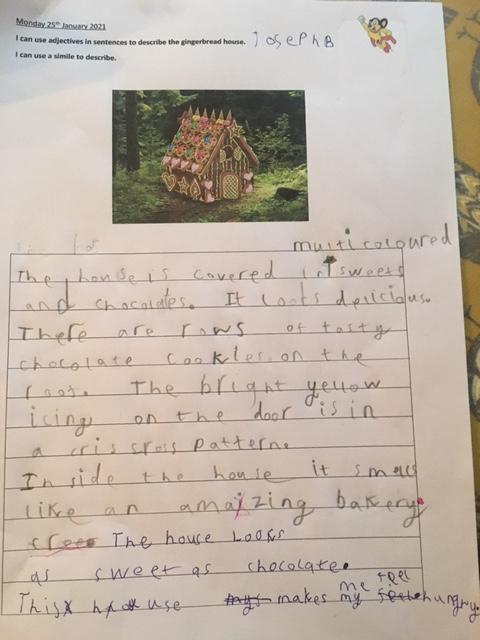 Monday 25th January 2021
I can use adjectives in sentences to describe the gingerbread house. Joseph B
I can use a simile to describe.
multicoloured
The house is covered in sweets
and chocolates. It looks delicious.
There are rows of tasty
chocolate cookies on the
roof. The bright yellow
icing on the door is in
a criscross pattern.
Inside the house it smells
like an amazing bakery.
The house Looks
as sweet as chocolate.
me feel
This house makes my hungry.